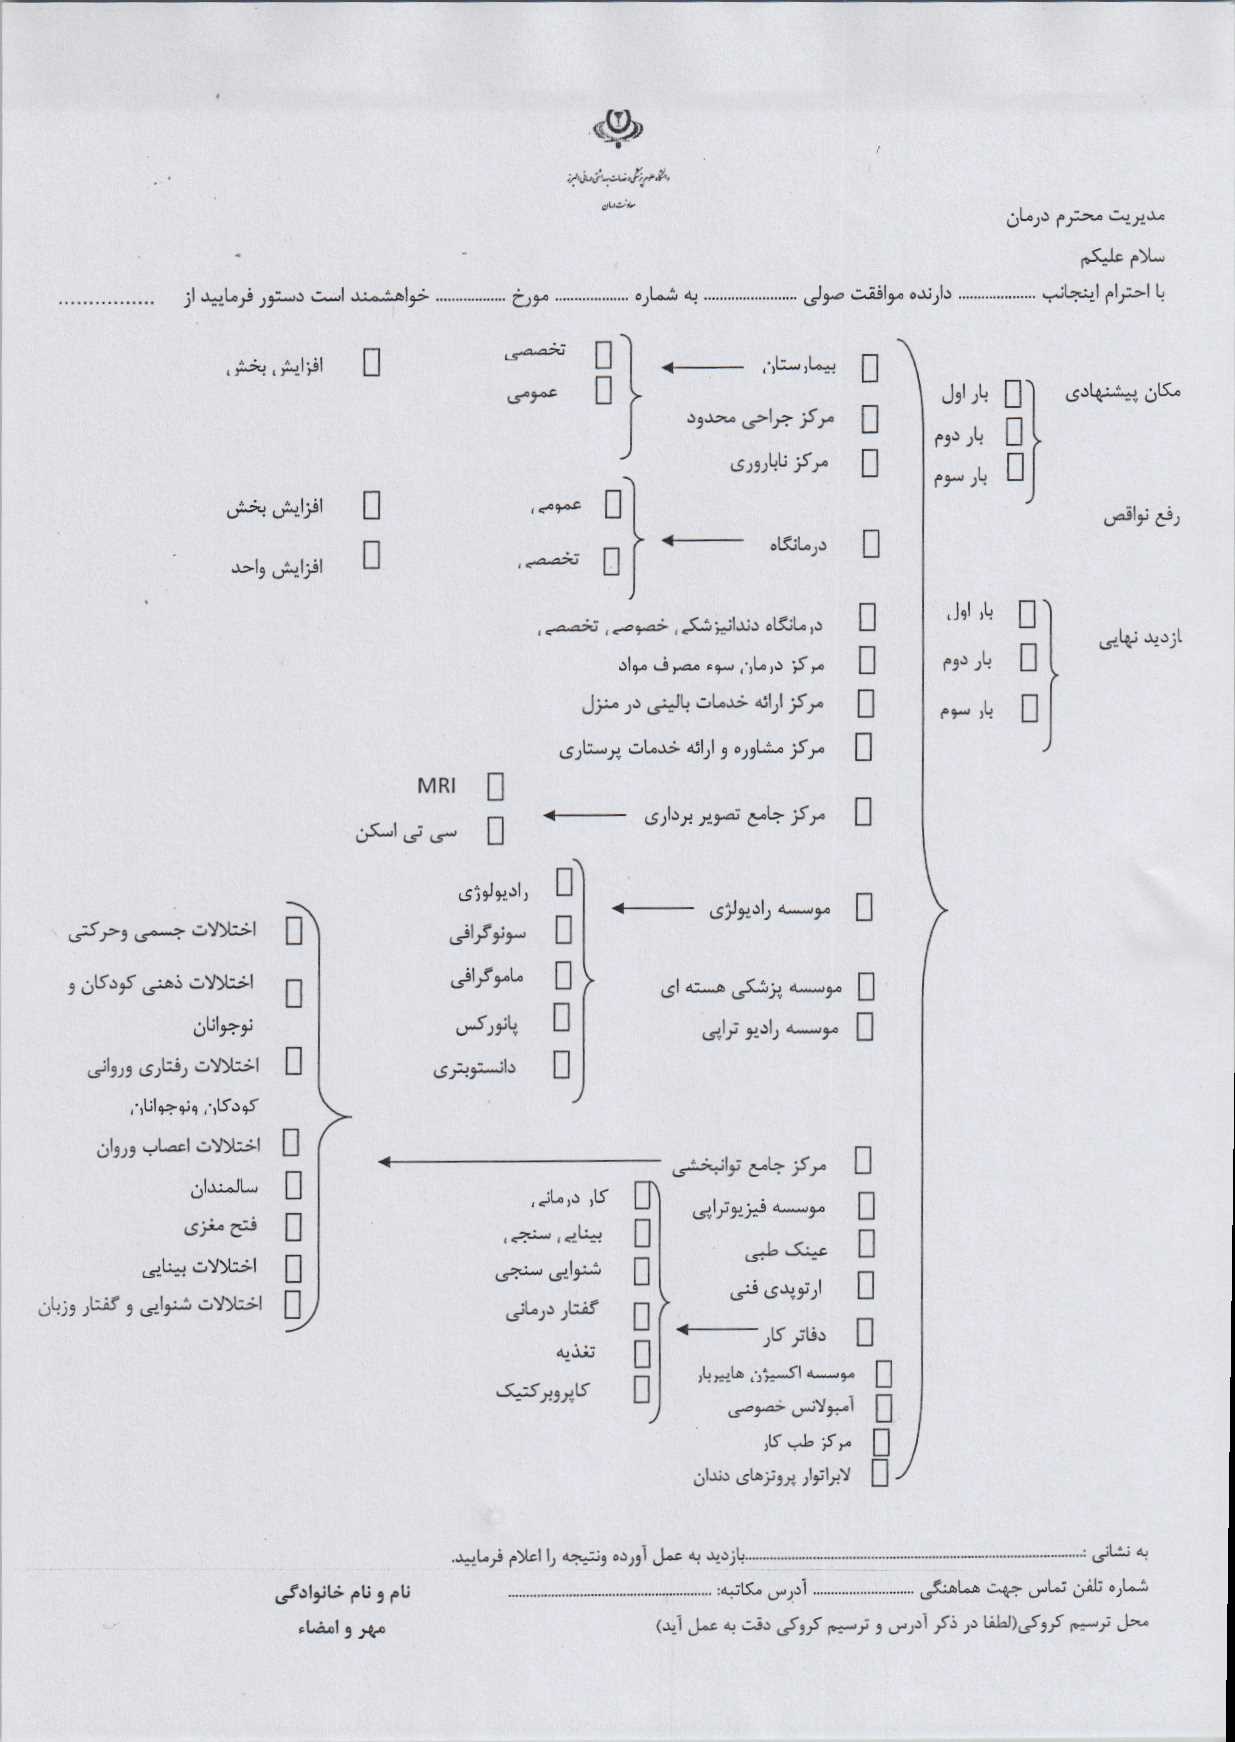 دانشگاه علوم پزشکی و خدمات بهداشتی درمانی البرز
معاونت درمان
مدیریت محترم درمان
سلام علیکم
با احترام اینجانب .................... دارنده موافقت صولی ........................ به شماره ................... مورخ .................. خواهشمند است دستور فرمایید از ................
مکان پیشنهادی
بار اول
بار دوم
بار سوم
رفع نواقص
بازدید نهایی
بار اول
بار دوم
بار سوم
بیمارستان
تخصصی
عمومی
افزایش بخش
مرکز جراحی محدود
مرکز ناباروری
درمانگاه
عمومی
تخصصی
افزایش بخش
افزایش واحد
درمانگاه دندانپزشکی خصوصی تخصصی
مرکز درمان سوء مصرف مواد
مرکز ارائه خدمات بالینی در منزل
مرکز مشاوره و ارائه خدمات پرستاری
مرکز جامع تصویر برداری
MRI
سی تی اسکن
موسسه رادیولژی
رادیولوژی
سونوگرافی
ماموگرافی
پانورکس
دانستوبتری
موسسه پزشکی هسته ای
موسسه رادیو تراپی
مرکز جامع توانبخشی
اختلالات جسمی وحرکتی
اختلالات ذهنی کودکان و
نوجوانان
اختلالات رفتاری وروانی
کودکان ونوجوانان
اختلالات اعصاب وروان
سالمندان
فتح مغزی
اختلالات بینایی
اختلالات شنوایی و گفتار وزبان
موسسه فیزیوتراپی
عینک طبی
ارتوپدی فنی
دفاتر کار
کار درمانی
بینایی سنجی
شنوایی سنجی
گفتار درمانی
تغذیه
کاپروبرکتیک
موسسه اکسیژن هایپربار
آمبولانس خصوصی
مرکز طب کار
لابراتوار پروتزهای دندان
به نشانی :......................................................................................بازدید به عمل آورده ونتیجه را اعلام فرمایید.
شماره تلفن تماس جهت هماهنگی .......................... آدرس مکاتبه: ....................................................
محل ترسیم کروکی(لطفا در ذکر آدرس و ترسیم کروکی دقت به عمل آید)
نام و نام خانوادگی
مهر و امضاء